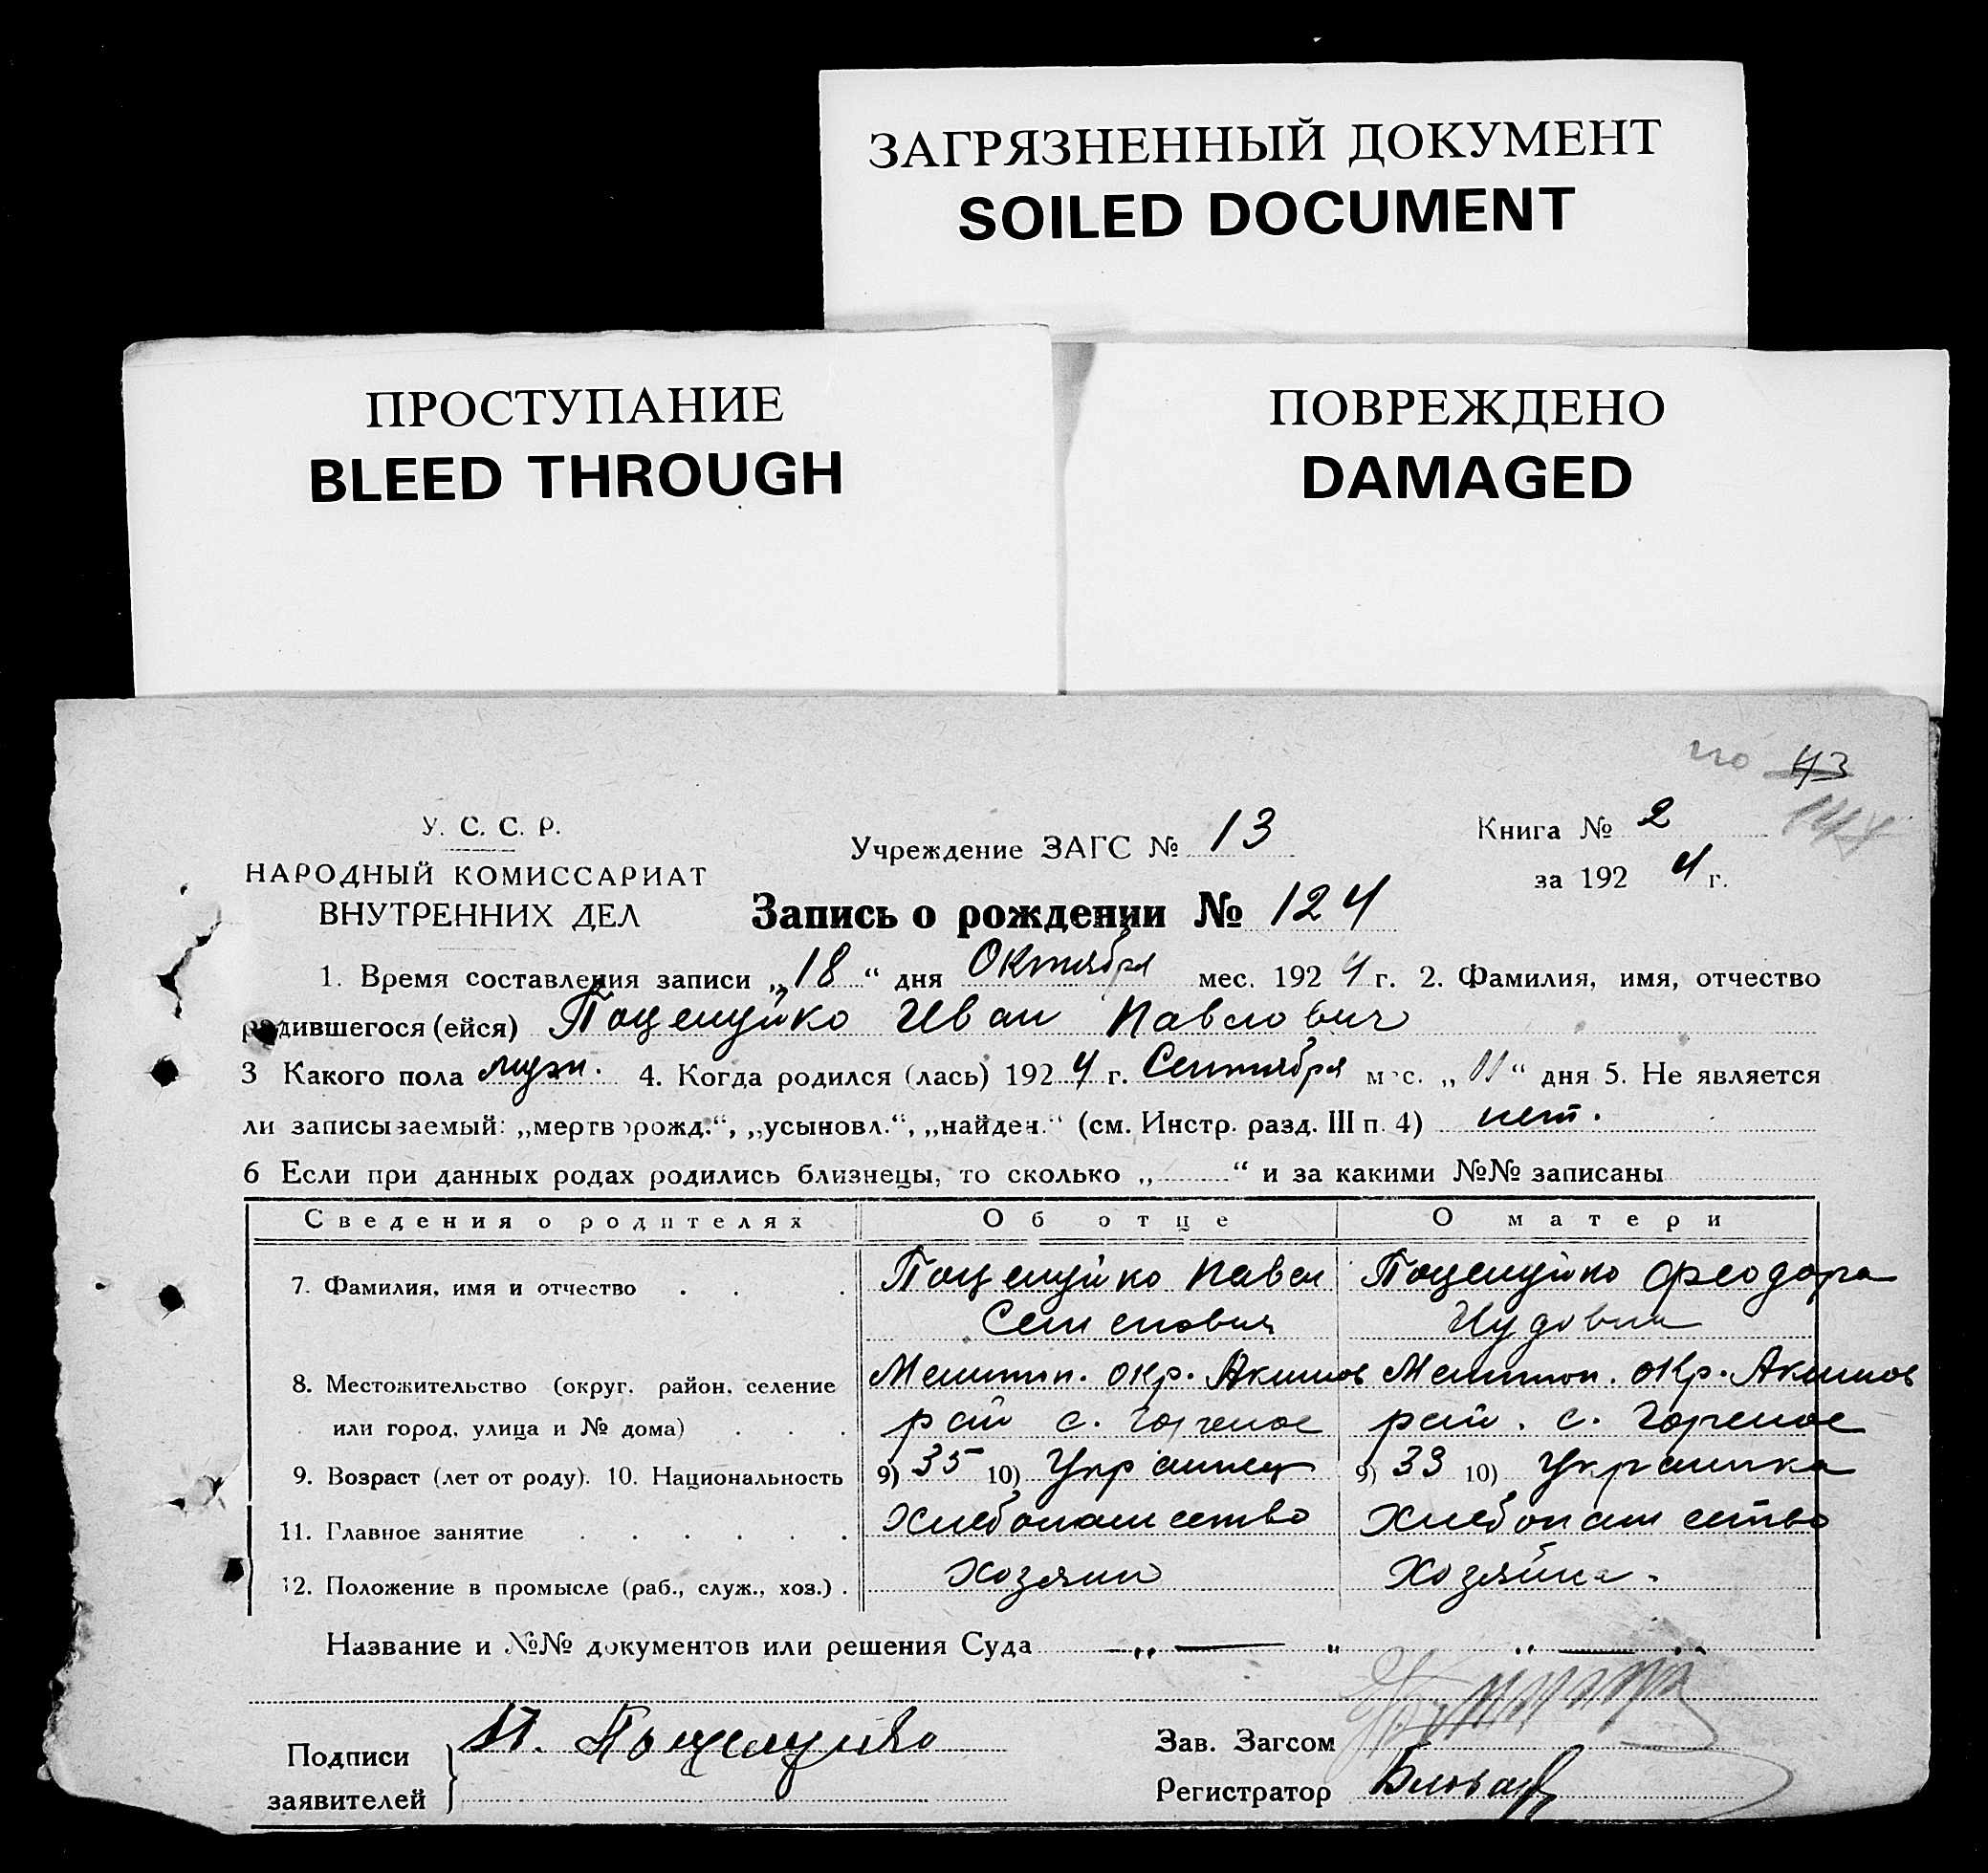 ЗАГРЯЗНЕННЫЙ ДОКУМЕНТ
SOILED DOCUMENT
ПРОСТУПАНИЕ
BLEED THROUGH
ПОВРЕЖДЕНО
DAMAGED
43
У. С. С. Р.
НАРОДНЫЙ КОМИССАРИАТ
ВНУТРЕННИХ ДЕЛ
Учреждение ЗАГС № 13
Книга № 2
за 1924 г.
Запись о рождении № 124
1. Время составления записи „18“ дня Октября мес. 1924 г. 2. Фамилия, имя, отчество
родившегося (ейся) Поцелуйко Иван Павлович
3 Какого пола муж. 4. Когда родился (лась) 1924 г. Сентября мес. „11“ дня 5. Не является
ли записываемый: „мертворожд.“, „усыновл.“, „найден.“ (см. Инстр. разд. III п. 4) нет.
6 Если при данных родах родились близнецы, то сколько „ “ и за какими №№ записаны
Сведения о родителях Об отце О матери
7. Фамилия, имя и отчество . . . Поцелуйко Павел Поцелуйко Феодора
Семенович
8. Местожительство (округ, район, селение Мелитоп. окр. Акимов Мелитоп. окр. Акимов
или город, улица и № дома) . . . рай с. рай. с.
9. Возраст (лет от роду). 10. Национальность 9) 35 10) Украинец 9) 33 10) Украинка
11. Главное занятие . . . . . . Хлебопашество Хлебопашество
12. Положение в промысле (раб., служ., хоз.) . Хозяин Хозяйка.
Название и №№ документов или решения Суда „ — “ „ — “
Подписи
заявителей
П. Поцелуйко
Зав. Загсом
Регистратор